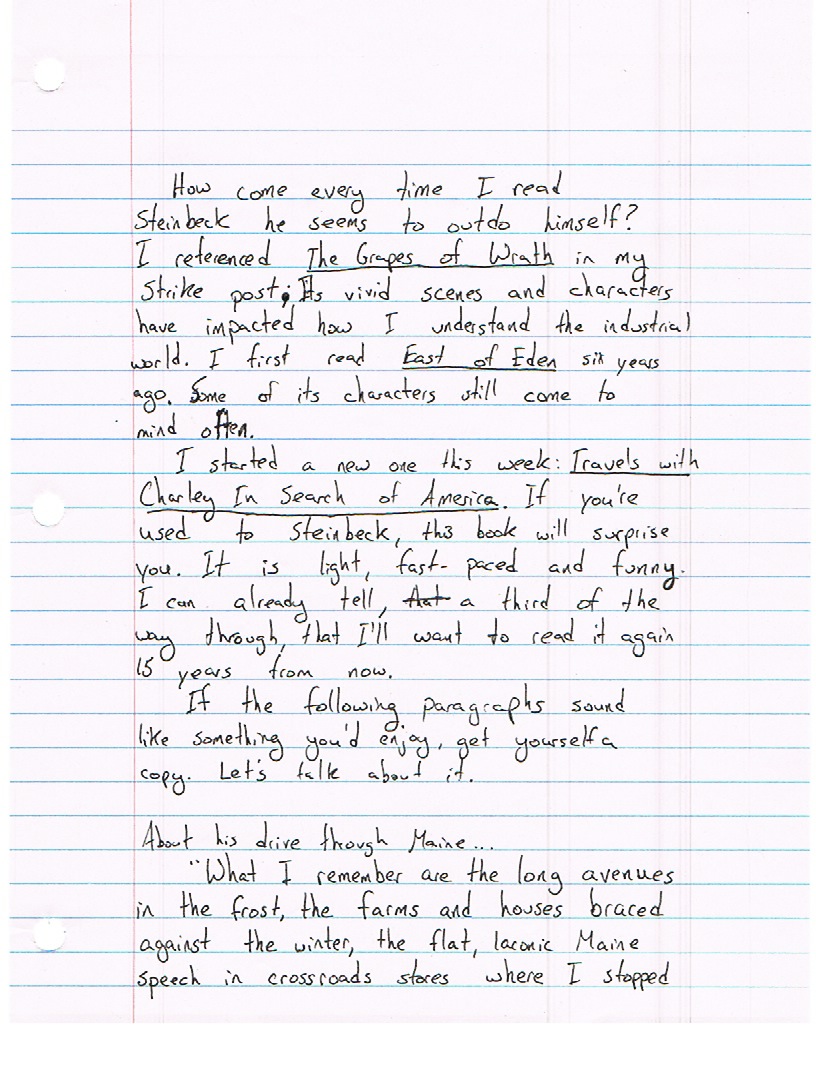 How come every time I read
Steinbeck he seems to outdo himself?
I referenced The Grapes of Wrath in my
Strike post; Its vivid scenes and characters
have impacted how I understand the industrial
world. I first read East of Eden six years
ago. Some of its characters still come to
mind often.
I started a new one this week: Travels with
Charley In Search of America. If you're
used to Steinbeck, this book will surprise
you. It is light, fast-paced and funny.
I can already tell, that a third of the
way through, that I'll want to read it again
15 years from now.
If the following paragraphs sound
like something you'd enjoy, get yourself a
copy. Let's talk about it.
About his drive through Maine...
"What I remember are the long avenues
in the frost, the farms and houses braced
against the winter, the flat, laconic Maine
speech in crossroads stores where I stopped